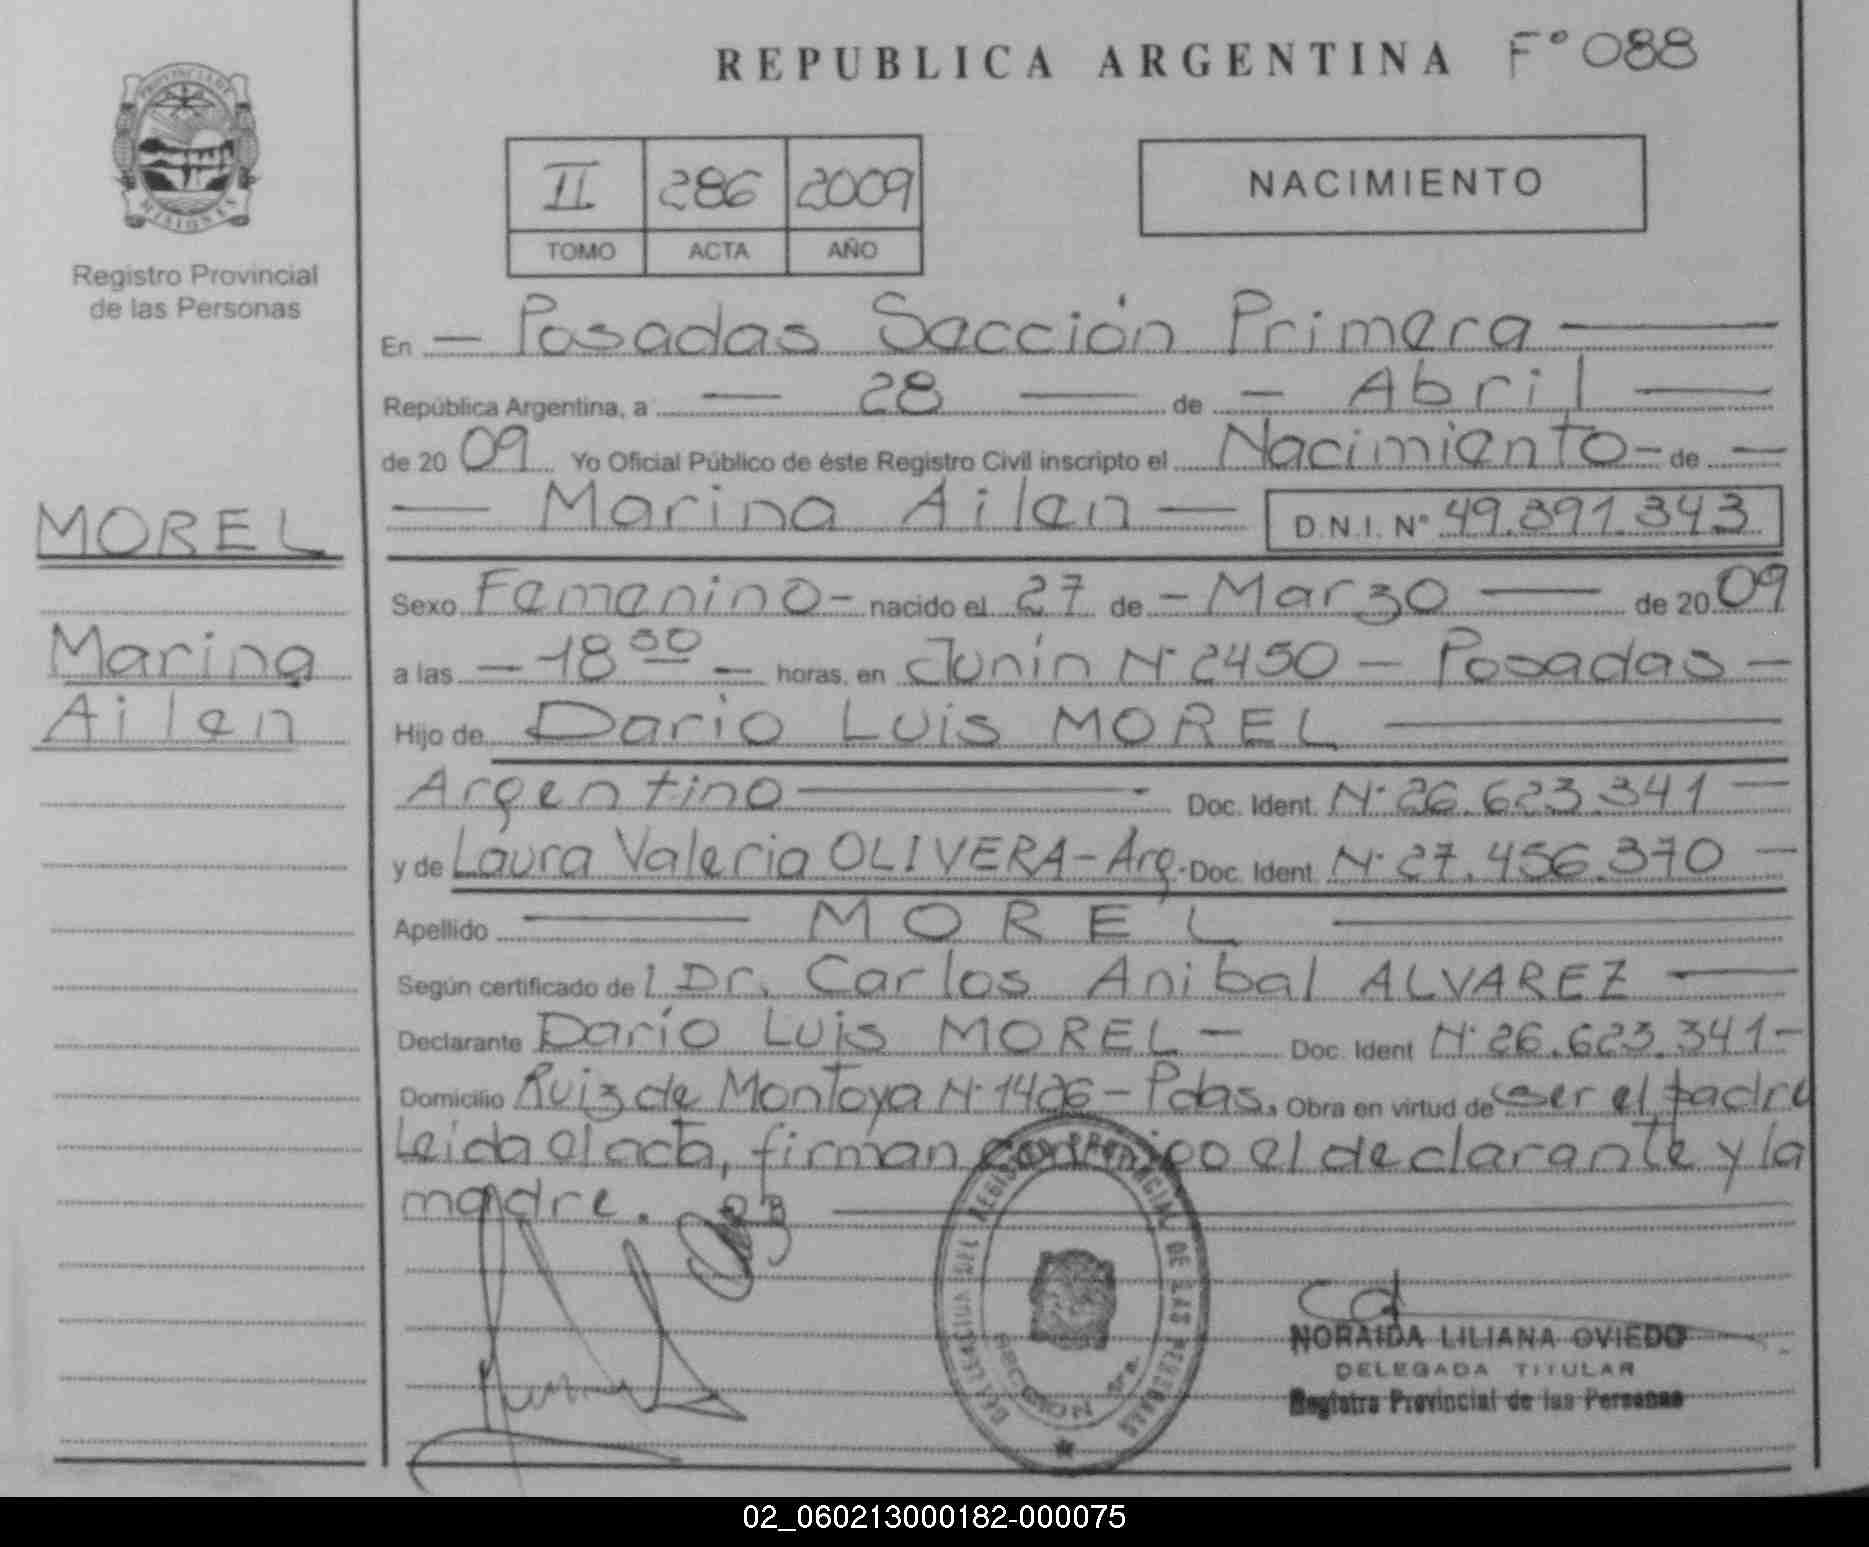 REPUBLICA ARGENTINA F° 088
PROVINCIA DE
MISIONES
Registro Provincial
de las Personas
II 286 2009
TOMO ACTA AÑO
NACIMIENTO
En — Posadas Sección Primera —
República Argentina, a — 28 — de — Abril —
de 20 09 Yo Oficial Público de éste Registro Civil inscripto el Nacimiento - de —
— Marina Ailen — D.N.I. N° 49.391.343
MOREL
Marina
Ailen
Sexo Femenino - nacido el 27 de - Marzo — de 20 09
a las — 18 50 — horas, en Junín N° 2450 — Posadas —
Hijo de Dario Luis MOREL —
Argentino — Doc. Ident. N° 26.623.341 —
y de Laura Valeria OLIVERA - Arg. Doc. Ident. N° 27.456.370 —
Apellido — MOREL —
Según certificado de l Dr. Carlos Anibal ALVAREZ —
Declarante Darío Luis MOREL — Doc. Ident N° 26.623.341 -
Domicilio Ruiz de Montoya N° 1426 - Pdas. Obra en virtud de ser el padre
Leida el acta, firman conmigo el declarante y la
madre. —
DELEGACION DEL REGISTRO PROVINCIAL DE LAS PERSONAS
SECCION 1ra.
NORAIDA LILIANA OVIEDO
DELEGADA TITULAR
Registro Provincial de las Personas
02_060213000182-000075